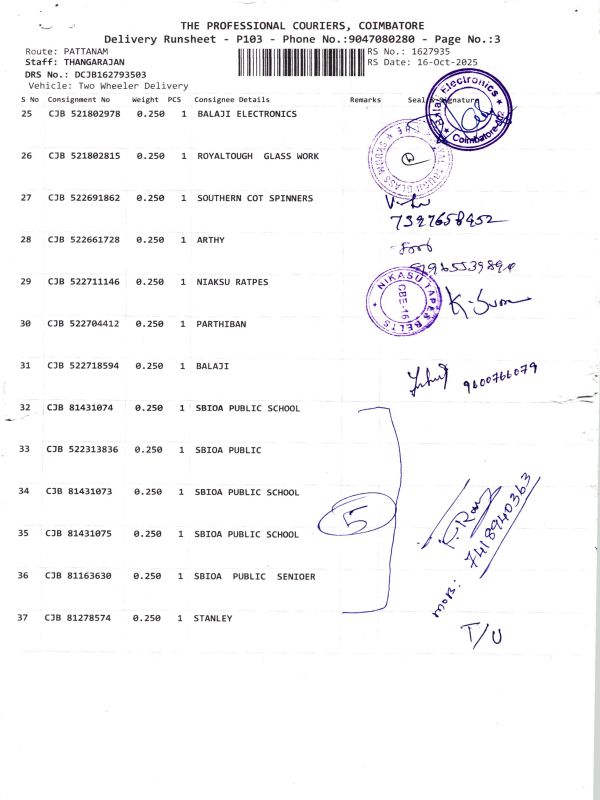 THE PROFESSIONAL COURIERS, COIMBATORE
Delivery Runsheet - P103 - Phone No.:9047080280 - Page No.:3
Route: PATTANAM RS No.: 1627935
Staff: THANGARAJAN RS Date: 16-Oct-2025
DRS No.: DCJB162793503
Vehicle: Two Wheeler Delivery
S No Consignment No Weight PCS Consignee Details Remarks Seal & Signature
25 CJB 521802978 0.250 1 BALAJI ELECTRONICS
Balaji Electronics
Coimbatore
26 CJB 521802815 0.250 1 ROYALTOUGH GLASS WORK
27 CJB 522691862 0.250 1 SOUTHERN COT SPINNERS
7397658952
28 CJB 522661728 0.250 1 ARTHY
29 CJB 522711146 0.250 1 NIAKSU RATPES
NIKASU TAPES BELTS
CBE-16
30 CJB 522704412 0.250 1 PARTHIBAN
31 CJB 522718594 0.250 1 BALAJI
9600766079
32 CJB 81431074 0.250 1 SBIOA PUBLIC SCHOOL
33 CJB 522313836 0.250 1 SBIOA PUBLIC
34 CJB 81431073 0.250 1 SBIOA PUBLIC SCHOOL
5
7418940363
35 CJB 81431075 0.250 1 SBIOA PUBLIC SCHOOL
36 CJB 81163630 0.250 1 SBIOA PUBLIC SENIOER
37 CJB 81278574 0.250 1 STANLEY
T/U